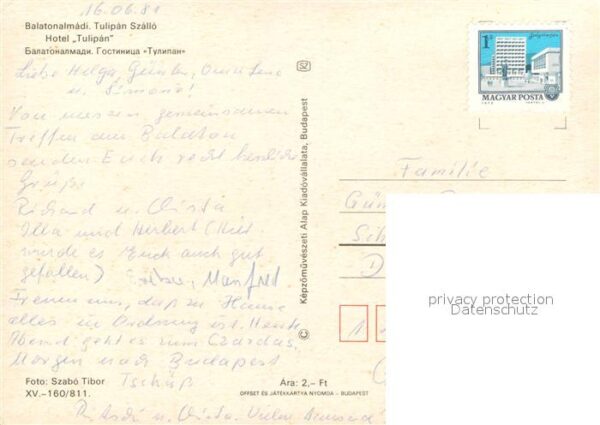 16.06.81
Balatonalmádi. Tulipán Szálló
Hotel „Tulipán"
Балатоналмади. Гостиница «Тулипан»
Liebe Helga, Günter,
u. Simone!
Von unserem gemeinsamen
Treffen am Balaton
senden Euch recht herzliche
Grüße
Richard u. Christa
Illa und Herbert (Hier
würde es Euch auch gut
gefallen) Manfred
Freuen uns, daß zu Hause
alles in Ordnung ist. Heute
Abend geht es zum Czardas.
Morgen nach Budapest
Tschüß
Foto: Szabó Tibor
XV.–160/811.
Ára: 2,– Ft
OFFSET ÉS JÁTÉKKÁRTYA NYOMDA – BUDAPEST
SZ
Képzőművészeti Alap Kiadóvállalata, Budapest
1Ft
MAGYAR POSTA
Familie
Gün
Sch
D
privacy protection
Datenschutz